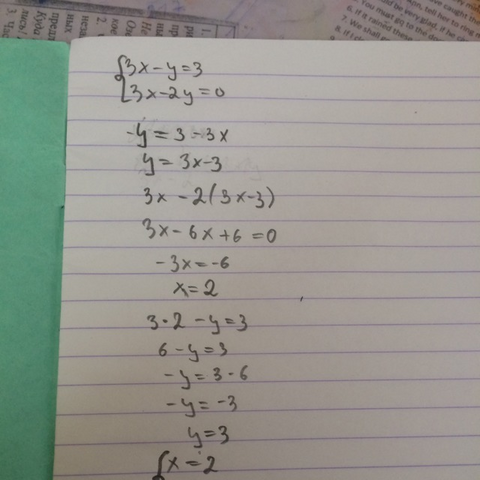 {3x-y=3
{3x-2y=0
-y=3-3x
y=3x-3
3x-2(3x-3)
3x-6x+6=0
-3x=-6
x=2
3·2-y=3
6-y=3
-y=3-6
-y=-3
y=3
{x=2